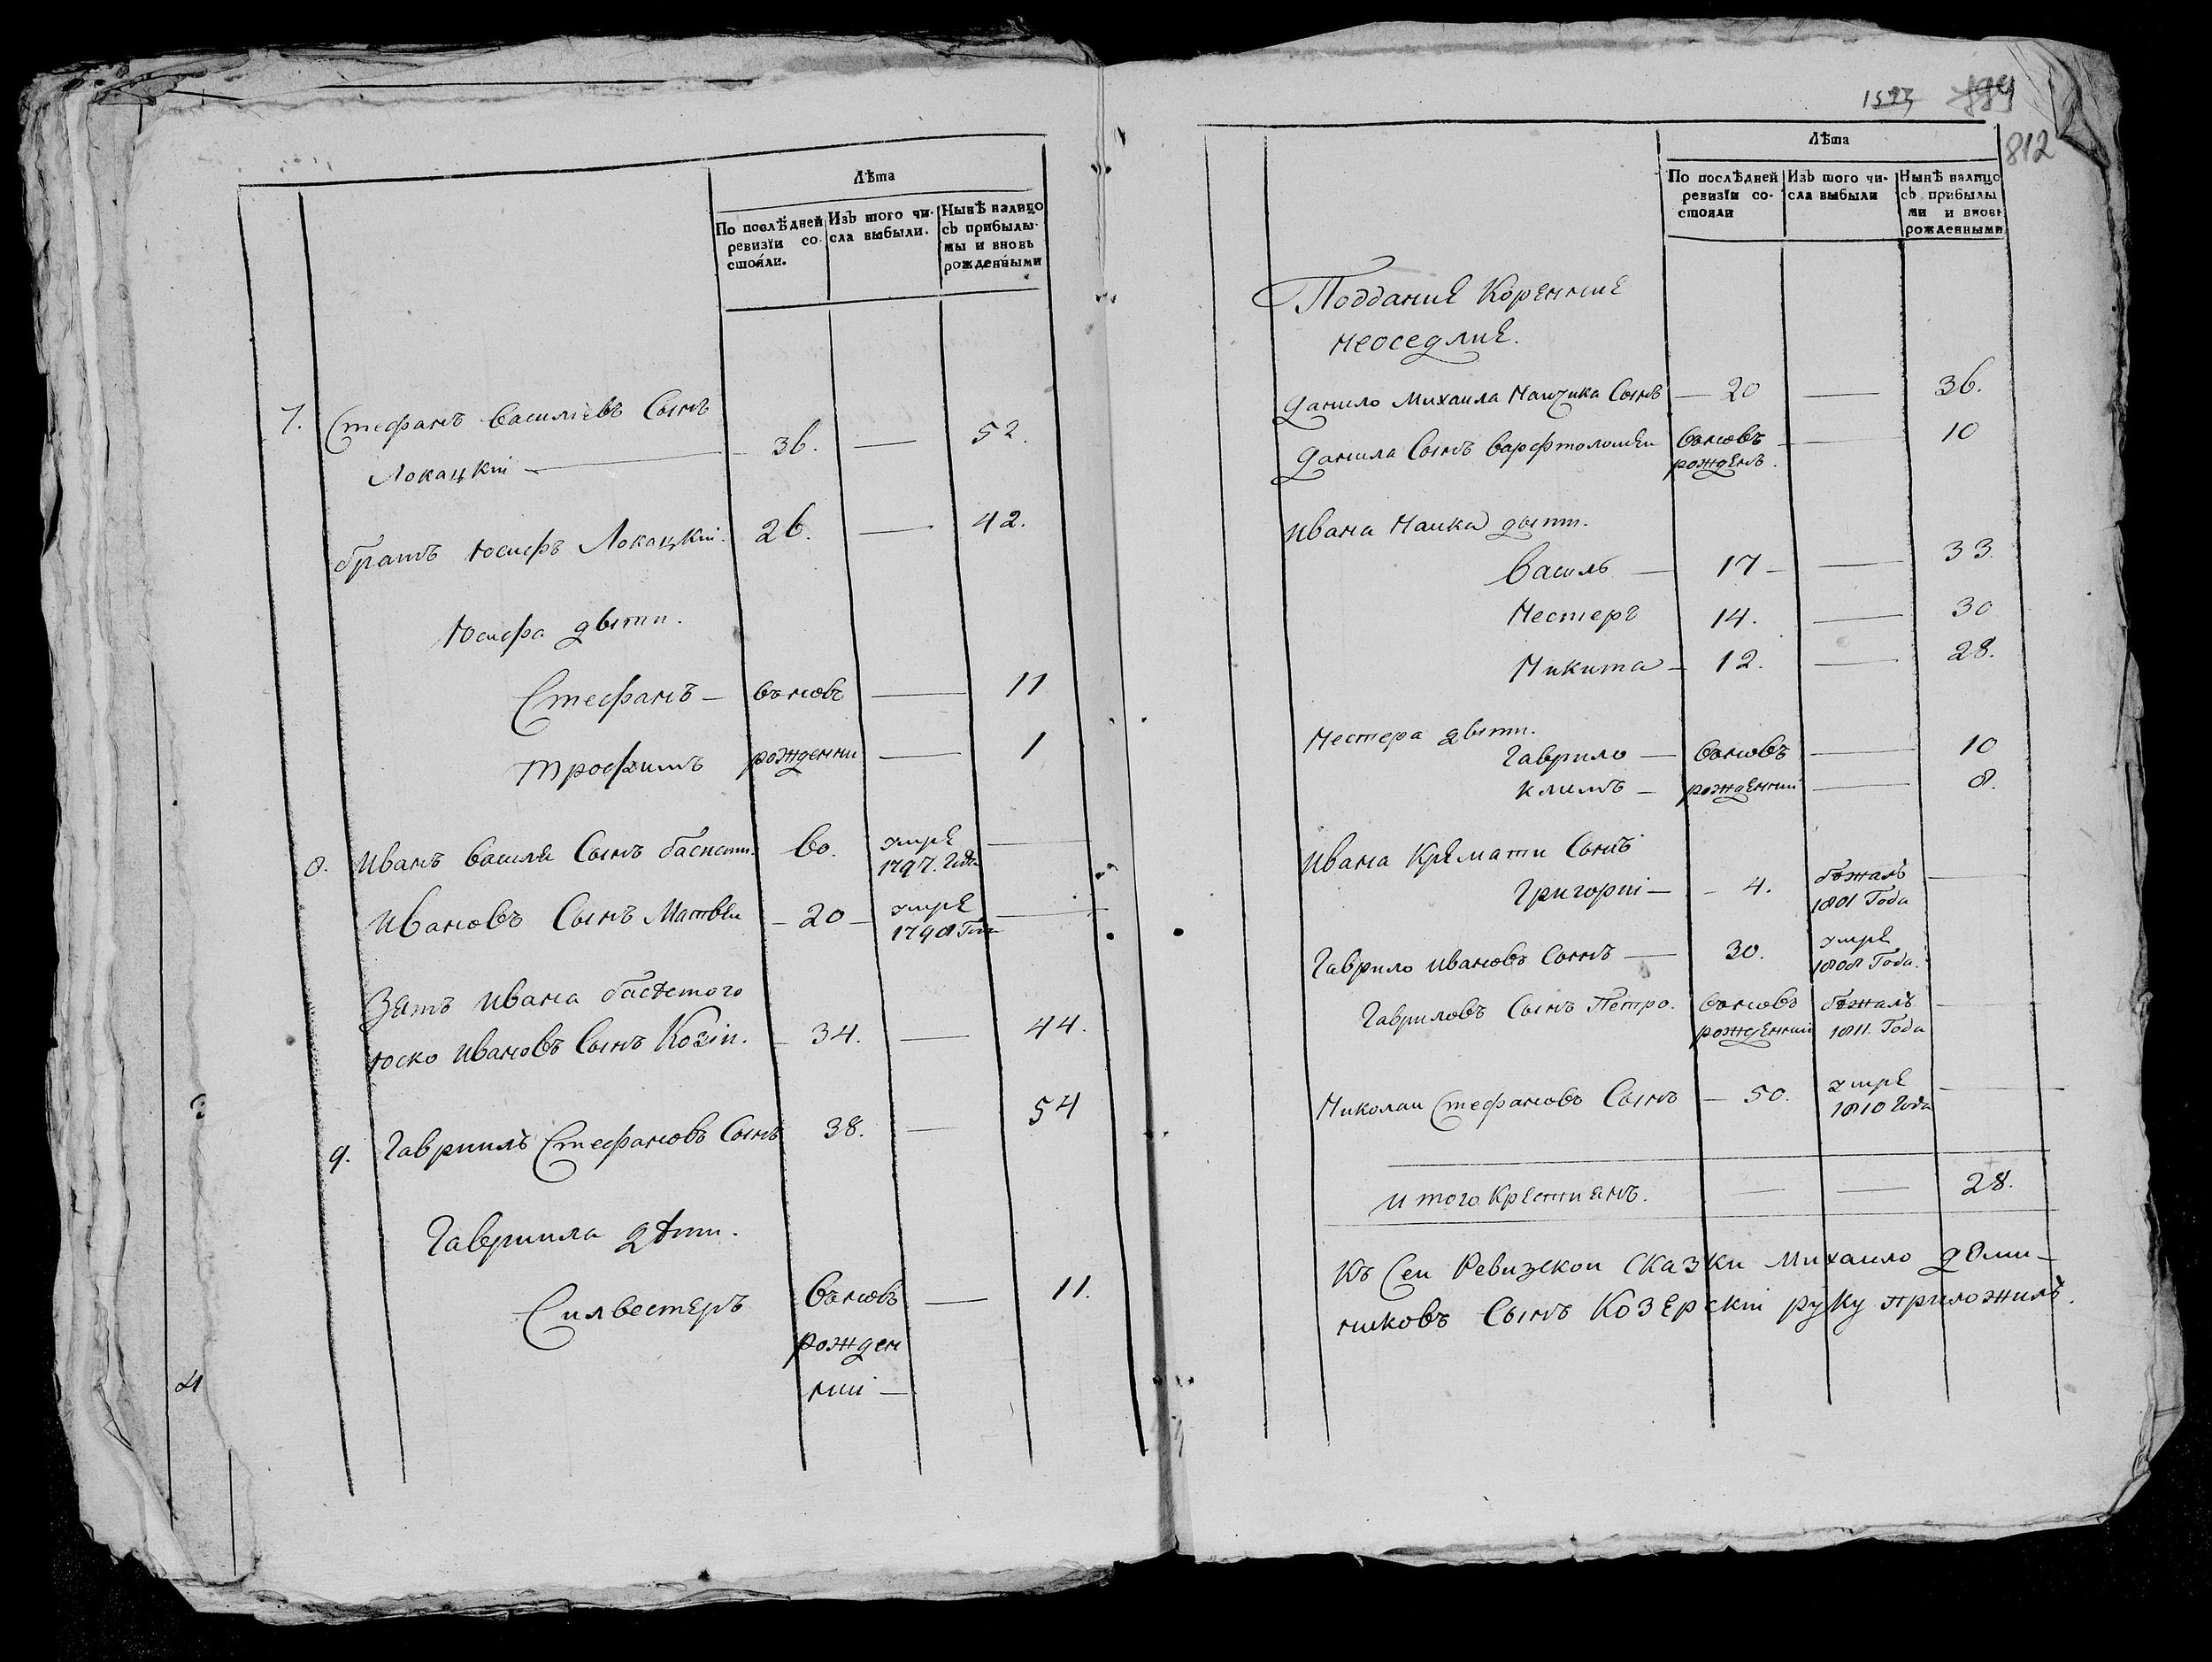 Лѣта
По послѣдней ревизіи состояли.
Изъ того числа выбыли.
Нынѣ налицо съ прибылыми и вновь рожденными
7. Стефанъ Василіевъ Сынъ
Локацкій — 36. — 52.
братъ Юсифъ Локацкій. 26. — 42.
Юсифа дѣти.
Стефанъ — въновъ — 11
Трофимъ рожденни — 1
8. Иванъ Василя Сынъ басисти. 60. умре —
1797. Года
Ивановъ Сынъ Матвѣи — 20 — умре —
1798 Года
Зять Ивана басистого
Юско Ивановъ Сынъ Козій. — 34. — 44.
9. Гавриилъ Стефановъ Сынъ 38. — 54
Гавриила дѣти.
Силвестеръ Въновъ — 11.
рожден
ній —
4
1523 894
812
Лѣта
По послѣдней ревизіи состояли
Изъ того числа выбыли
Нынѣ налицо съ прибылыми и вновь рожденными
Поддание Коренние
неоседлие.
Данило Михаила Сынъ — 20 — 36.
Данила Сынъ Варфтоломѣи Въновъ — 10
рожденъ.
Ивана дѣти.
Василь — 17 — — 33
Нестеръ 14. — 30
Никита — 12. — 28.
Нестера дѣти.
Гаврило — Въновъ — 10
Климъ — рожденній — 8.
Ивана Сынъ
Григорій — — 4. бѣжалъ —
1801 Года
Гаврило Ивановъ Сынъ — 30. умре
1808 Года.
Гавриловъ Сынъ Петро. Въновъ бѣжалъ —
рожденній 1811. Года
Николаи Стефановъ Сынъ — 50. умре —
1810 Года
Итого Крестиянъ. — — 28.
Къ Сеи Ревизскои Сказки Михаило доми-
никовъ Сынъ Козерскій руку приложилъ.